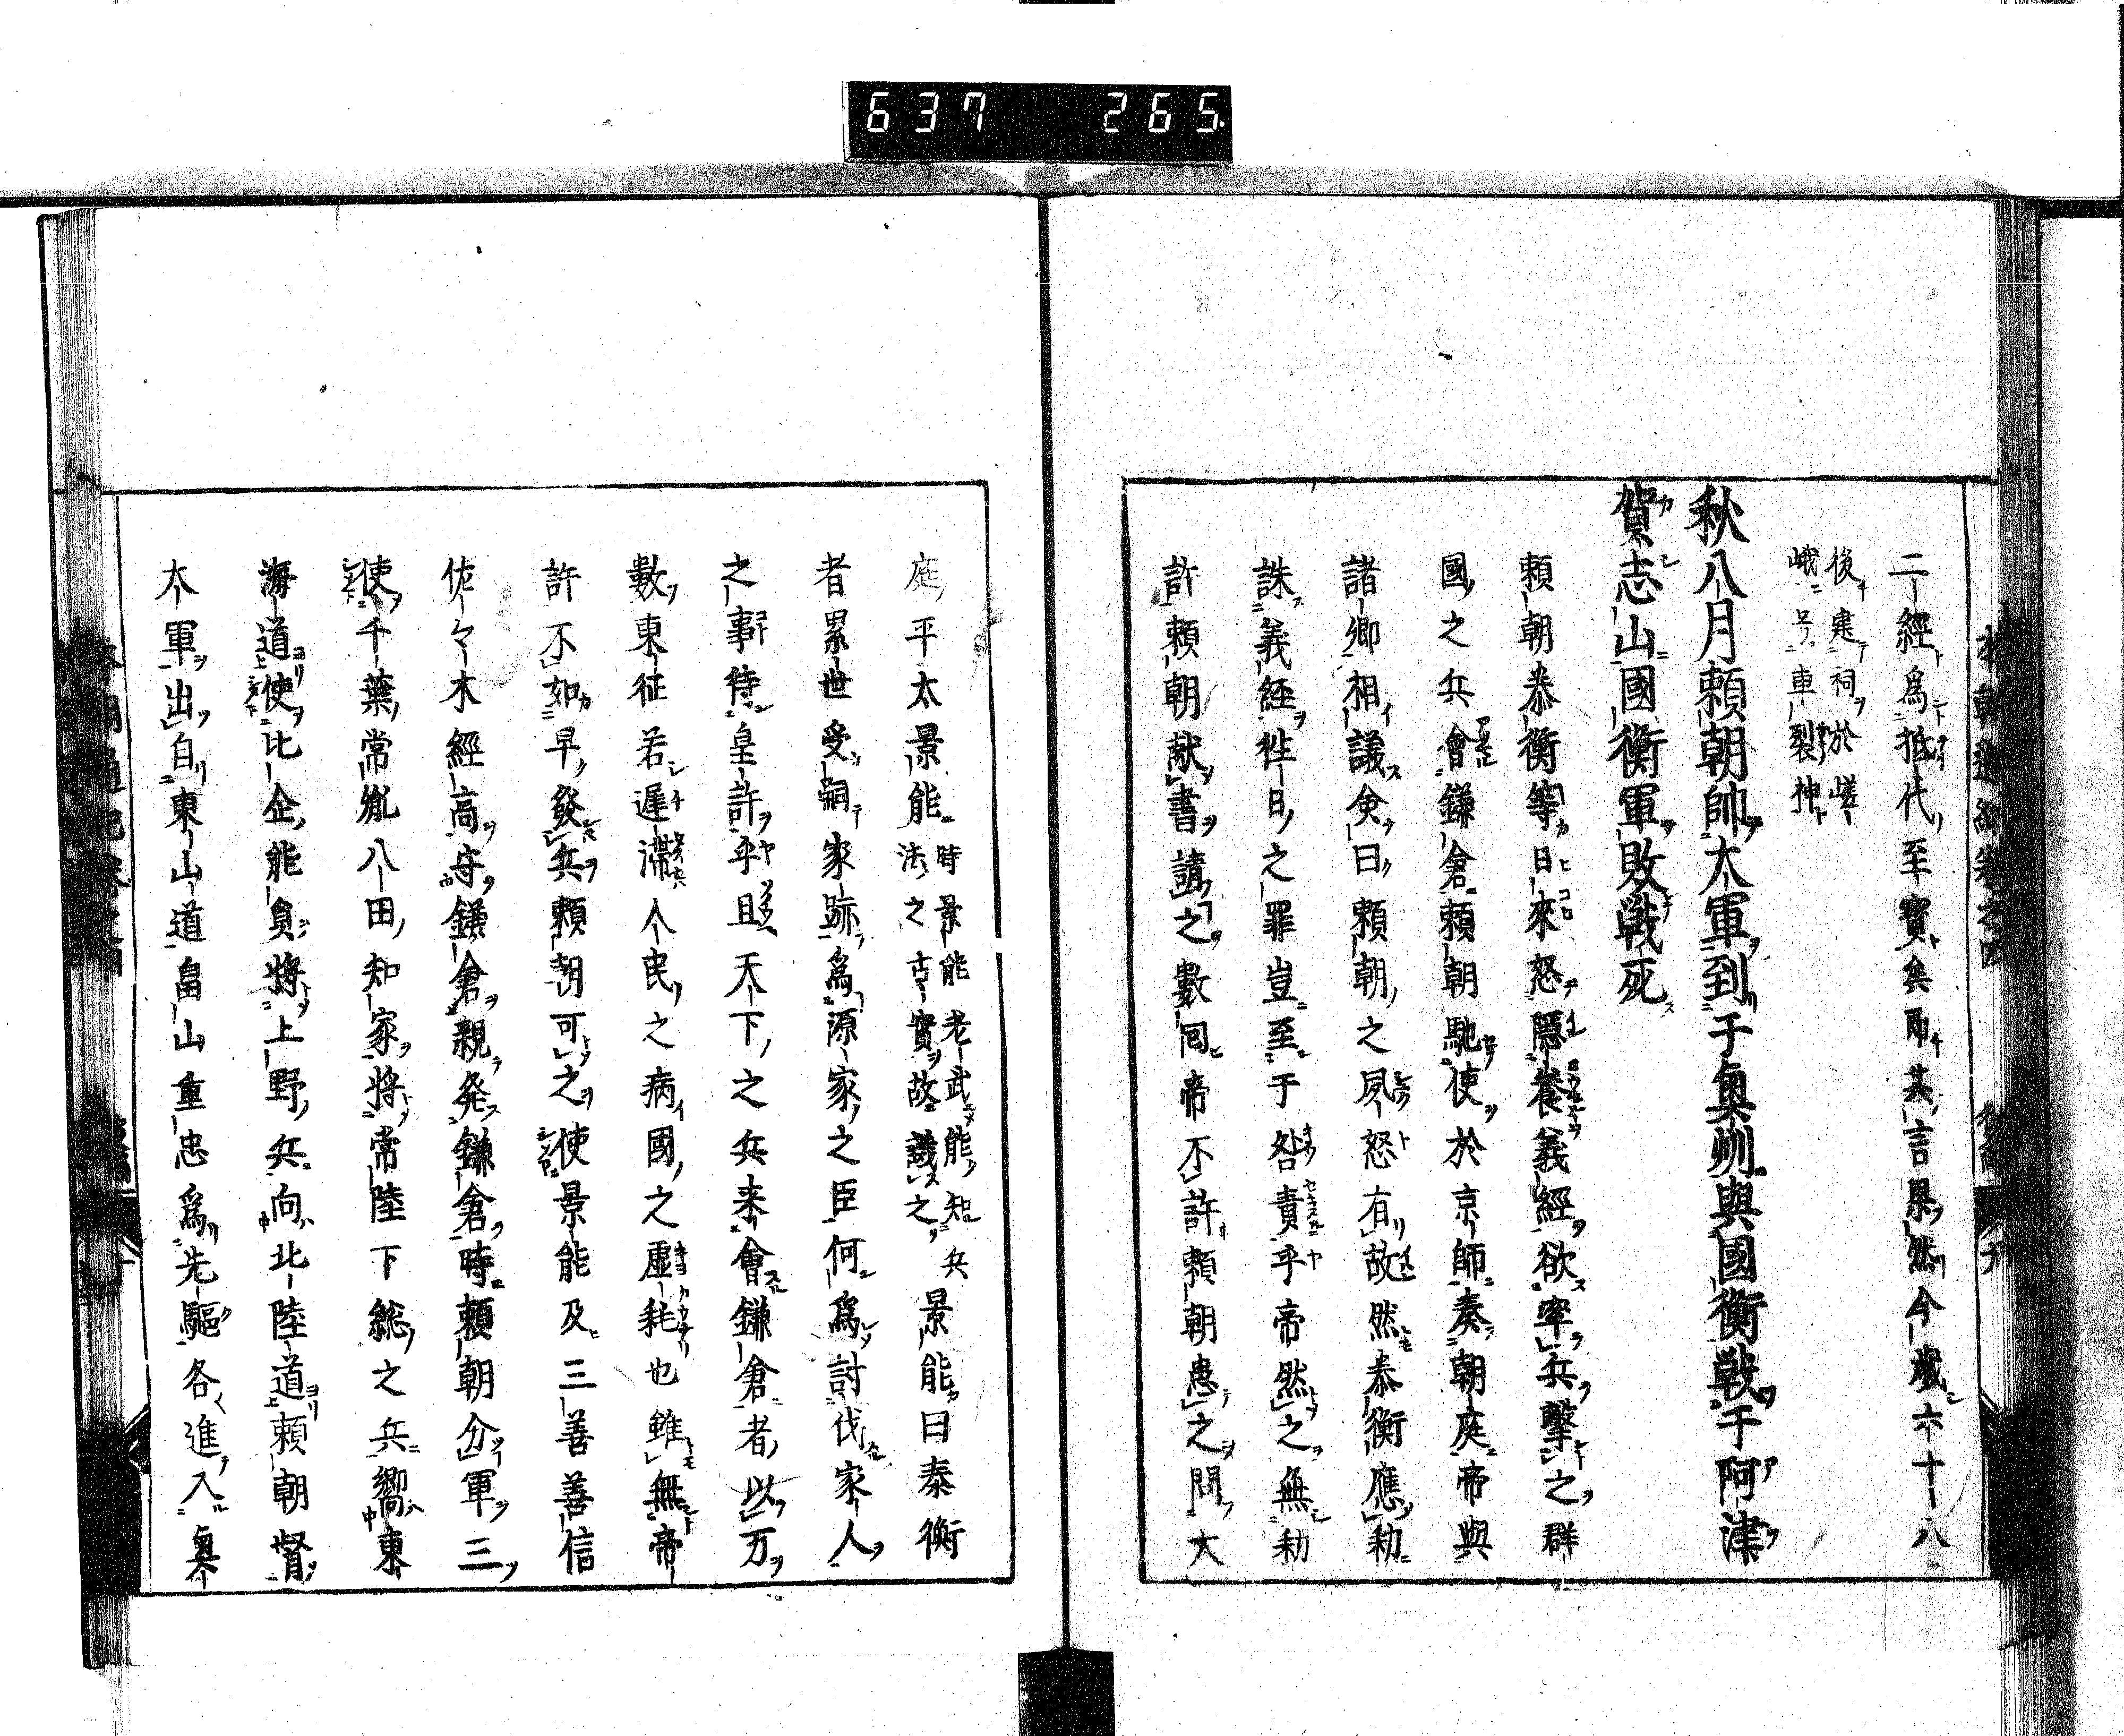 637 265
二經爲抵代至寶矣即其言果然今歳六十八
後建祠於嵯
峨号車裂神
秋八月頼朝帥大軍到于奥州與國衡戦于阿津
賀志山國衡軍敗戦死
頼朝泰衡等日來怒隠養義經欲率兵撃之群
國之兵會鎌倉頼朝馳使於京師奏朝庭帝與
諸卿相議僉曰頼朝之夙怒有故然泰衡應勅
誅義經徃日之罪豈至于咎責乎帝然之無勅
許頼朝献書請之數囘帝不許頼朝患之問大
庭平太景能
時景能老武能知兵
法之古實故議之
景能曰泰衡
者累世受嗣家跡爲源家之臣何爲討伐家人
之事待皇許乎且天下之兵来會鎌倉者以万
數東征若遅滞人民之病國之虚耗也雖無帝
許不如早發兵頼朝可之使景能及三善善信
佐々木經高守鎌倉親発鎌倉時頼朝分軍三
使千葉常胤八田知家将常陸下総之兵嚮東
海道使比企能員将上野兵向北陸道頼朝督
大軍出自東山道畠山重忠爲先驅各進入奥